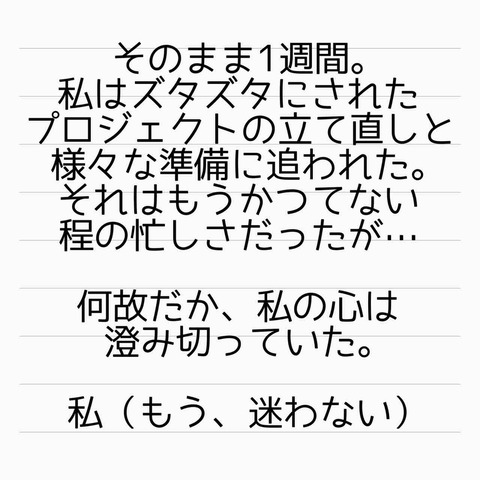 そのまま1週間。
私はズタズタにされた
プロジェクトの立て直しと
様々な準備に追われた。
それはもうかつてない
程の忙しさだったが…
何故だか、私の心は
澄み切っていた。
私（もう、迷わない）